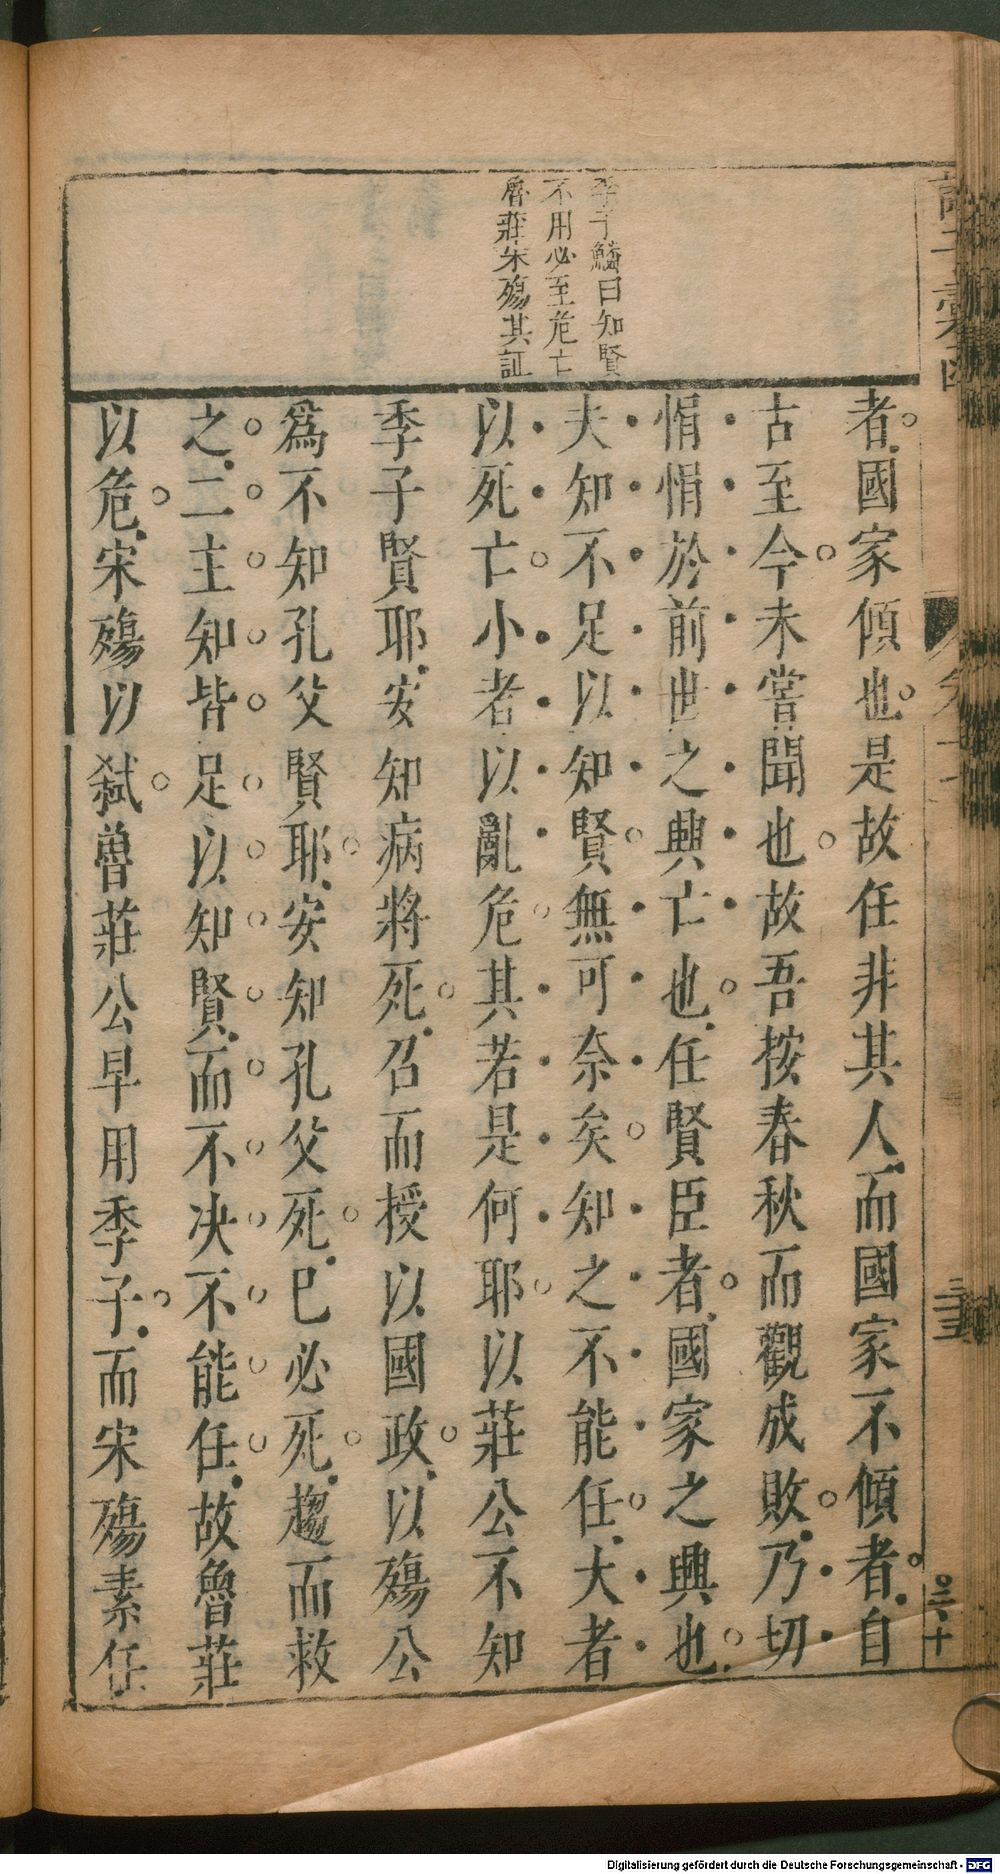 諸子彙函
卷十
三十五
者國家傾也是故任非其人而國家不傾者自
古至今未嘗聞也故吾按春秋而觀成敗乃切
悁悁於前世之興亡也任賢臣者國家之興也
夫知不足以知賢無可奈矣知之不能任大者
以死亡小者以亂危其若是何耶以莊公不知
季子賢耶安知病將死召而授以國政以殤公
爲不知孔父賢耶安知孔父死已必死趨而救
之二主知皆足以知賢而不决不能任故魯莊
以危宋殤以弑魯莊公早用季子而宋殤素任
季子鱗曰知賢
不用必至危亡
魯莊宋殤其証
Digitalisierung gefördert durch die Deutsche Forschungsgemeinschaft - DFG